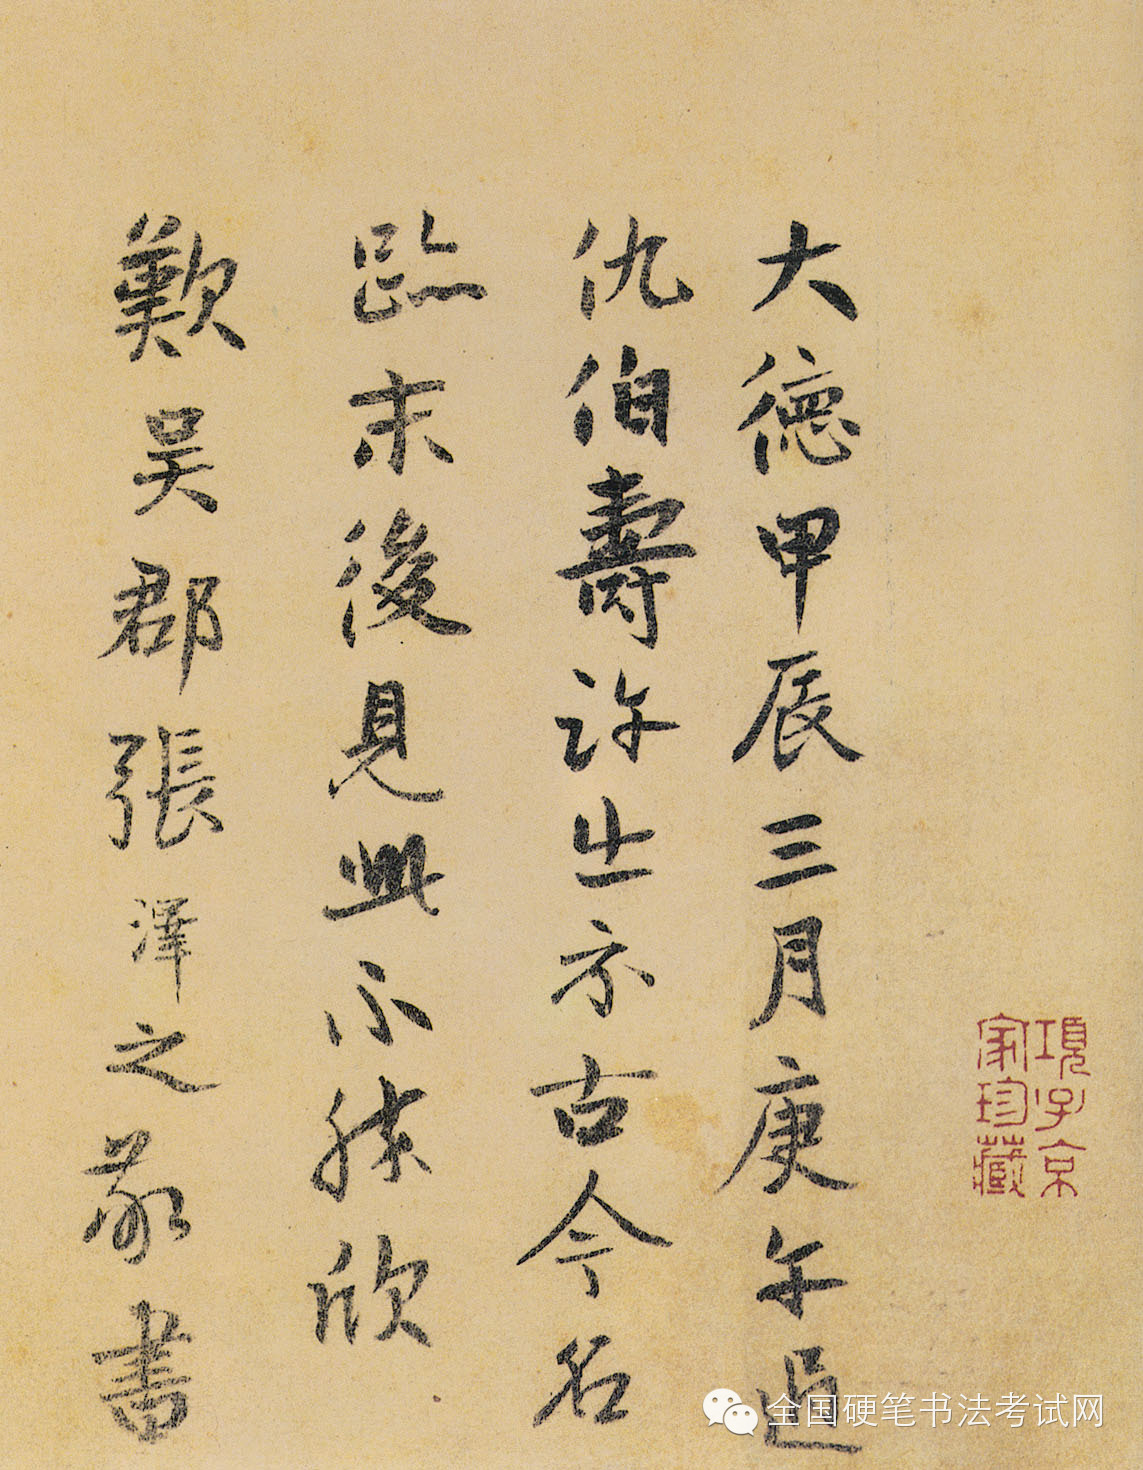 項子京
家珍藏
大德甲辰三月庚午過
仇伯壽許出示古今名
跡末後見此不勝欣
歎吳郡張澤之敬書
全国硬笔书法考试网